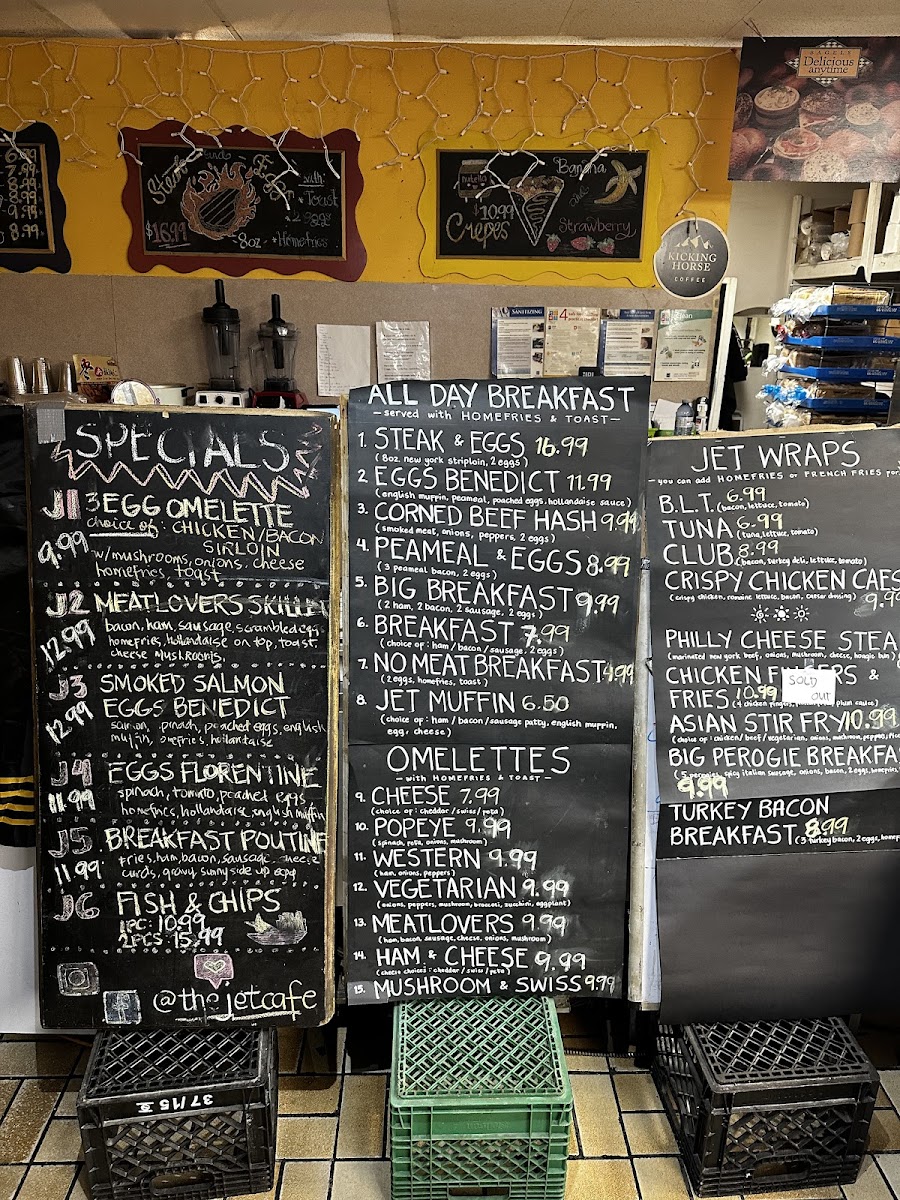 6.99
7.99
8.99
8.99
9.99
8.99
Steak and Eggs
with:
Toast
2 eggs
Homefries
$16.99
8oz
nutella
Banana
and
$10.99
Crepes
Strawberry
BAGELS
Delicious
anytime
KICKING
HORSE
COFFEE
SANITIZING
4
SPECIALS
J1 3 EGG OMELETTE
choice of: CHICKEN/BACON
SIRLOIN
9.99
w/mushrooms, onions, cheese
homefries, toast
J2 MEATLOVERS SKILLET
12.99
bacon, ham, sausage, scrambled eggs
homefries, hollandaise on top, toast.
cheese mushrooms,
J3 SMOKED SALMON
EGGS BENEDICT
12.99
poached eggs, english
hollandaise
J4 EGGS FLORENTINE
11.99
spinach, tomato, poached eggs
homefries, hollandaise, english muffin
J5 BREAKFAST POUTINE
11.99
fries, ham, bacon, sausage, cheese
curds, gravy, sunny side up egg
J6 FISH & CHIPS
1PC: 10.99
2PCS 15.99
@thejetcafe
ALL DAY BREAKFAST
- served with HOMEFRIES & TOAST -
1. STEAK & EGGS 16.99
(8oz. new york striploin, 2 eggs)
2 EGGS BENEDICT 11.99
(english muffin, peameal, poached eggs, hollandaise sauce)
3. CORNED BEEF HASH 9.99
(smoked meat, onions, peppers, 2 eggs)
4. PEAMEAL & EGGS 8.99
(3 peameal bacon, 2 eggs)
5. BIG BREAKFAST 9.99
(2 ham, 2 bacon, 2 sausage, 2 eggs)
6. BREAKFAST 7.99
(choice of: ham / bacon / sausage, 2 eggs)
7. NO MEAT BREAKFAST 4.99
(2 eggs, homefries, toast)
8. JET MUFFIN 6.50
(choice of: ham / bacon / sausage patty, english muffin,
egg, cheese)
OMELETTES
- with HOMEFRIES & TOAST -
9. CHEESE 7.99
(choice of: cheddar / swiss / feta)
10. POPEYE 9.99
(spinach, feta, onions, mushroom)
11. WESTERN 9.99
(ham, onions, peppers)
12. VEGETARIAN 9.99
(onions, peppers, mushroom, broccoli, zucchini, eggplant)
13. MEATLOVERS 9.99
(ham, bacon, sausage, cheese, onions, mushroom)
14. HAM & CHEESE 9.99
(cheese choices: cheddar / swiss / feta)
15. MUSHROOM & SWISS 9.99
JET WRAPS
- you can add HOMEFRIES or FRENCH FRIES for
B.L.T. 6.99
(bacon, lettuce, tomato)
TUNA 6.99
(tuna, lettuce, tomato)
CLUB 8.99
(bacon, turkey deli, lettuce, tomato)
CRISPY CHICKEN CAES
(crispy chicken, romaine lettuce, bacon, caesar dressing) 9.99
PHILLY CHEESE STEA
(marinated new york beef, onions, mushroom, cheese, hoagie bun)
CHICKEN FINGERS &
FRIES 10.99
(4 chicken fingers, plum sauce)
SOLD
OUT
ASIAN STIR FRY 10.99
(choice of: chicken / beef / vegetarian, onions, mushroom, pepper, rice
BIG PEROGIE BREAKFA
(5 perogies, spicy italian sausage, onions, bacon, 2 eggs, homefries
9.99
TURKEY BACON
BREAKFAST 8.99
(3 turkey bacon, 2 eggs, homefr
37/15